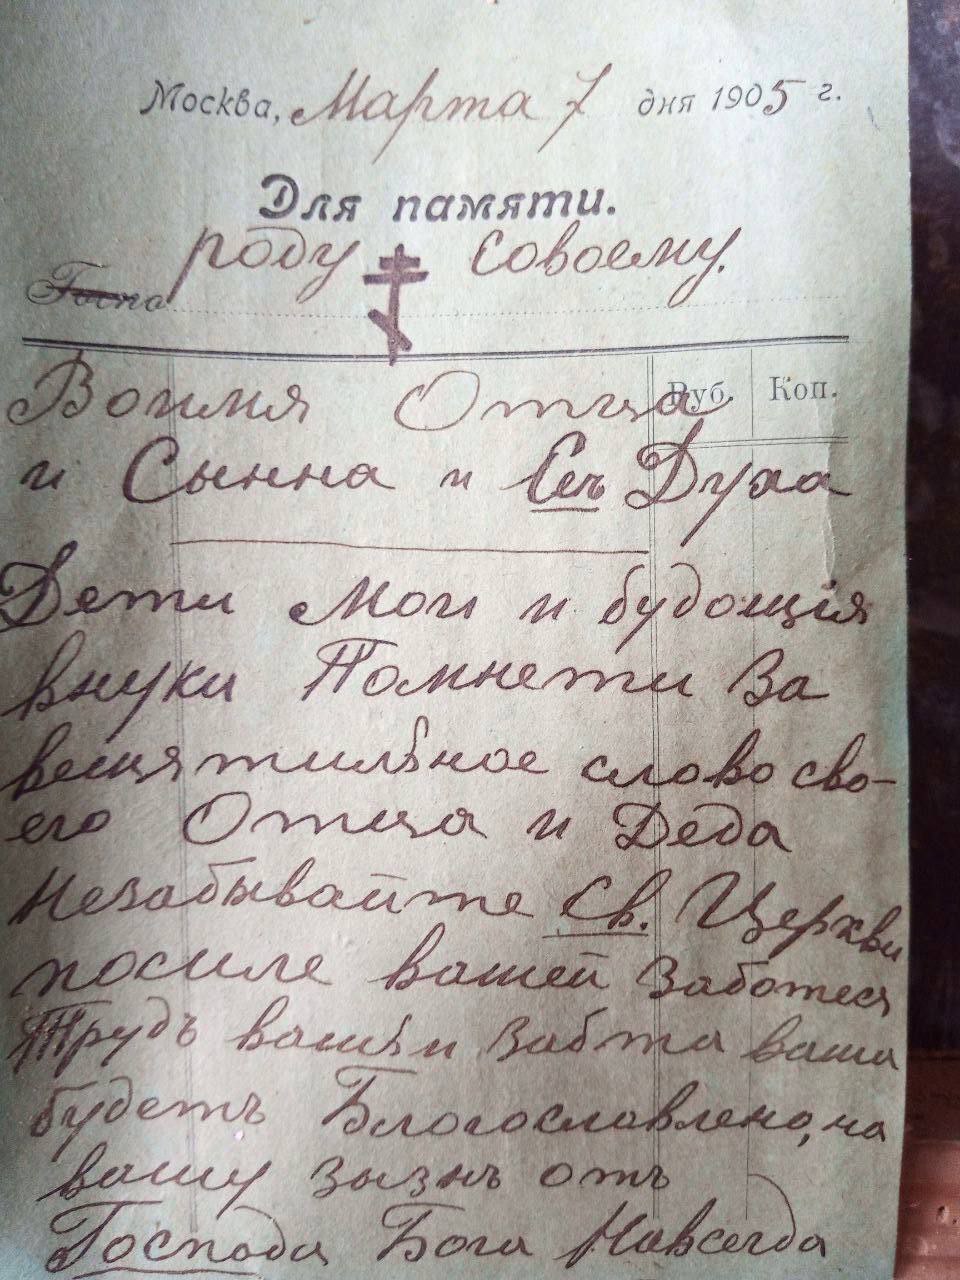 Москва, Марта 7 дня 1905 г.
Для памяти.
роду совоему.
Госпо
Воимя Отца Руб. Коп.
и Сынна и Свъ Духа
Дети мои и будощія
внуки Помнети за
вещятильное слово сво-
его Отца и Деда
Незабывайте Св. Церкви
посиле вашей заботеся
Трудъ вашъ и забта ваша
будетъ Благословлено, на
вашу зызнь отъ
Господа Бога Навсегда